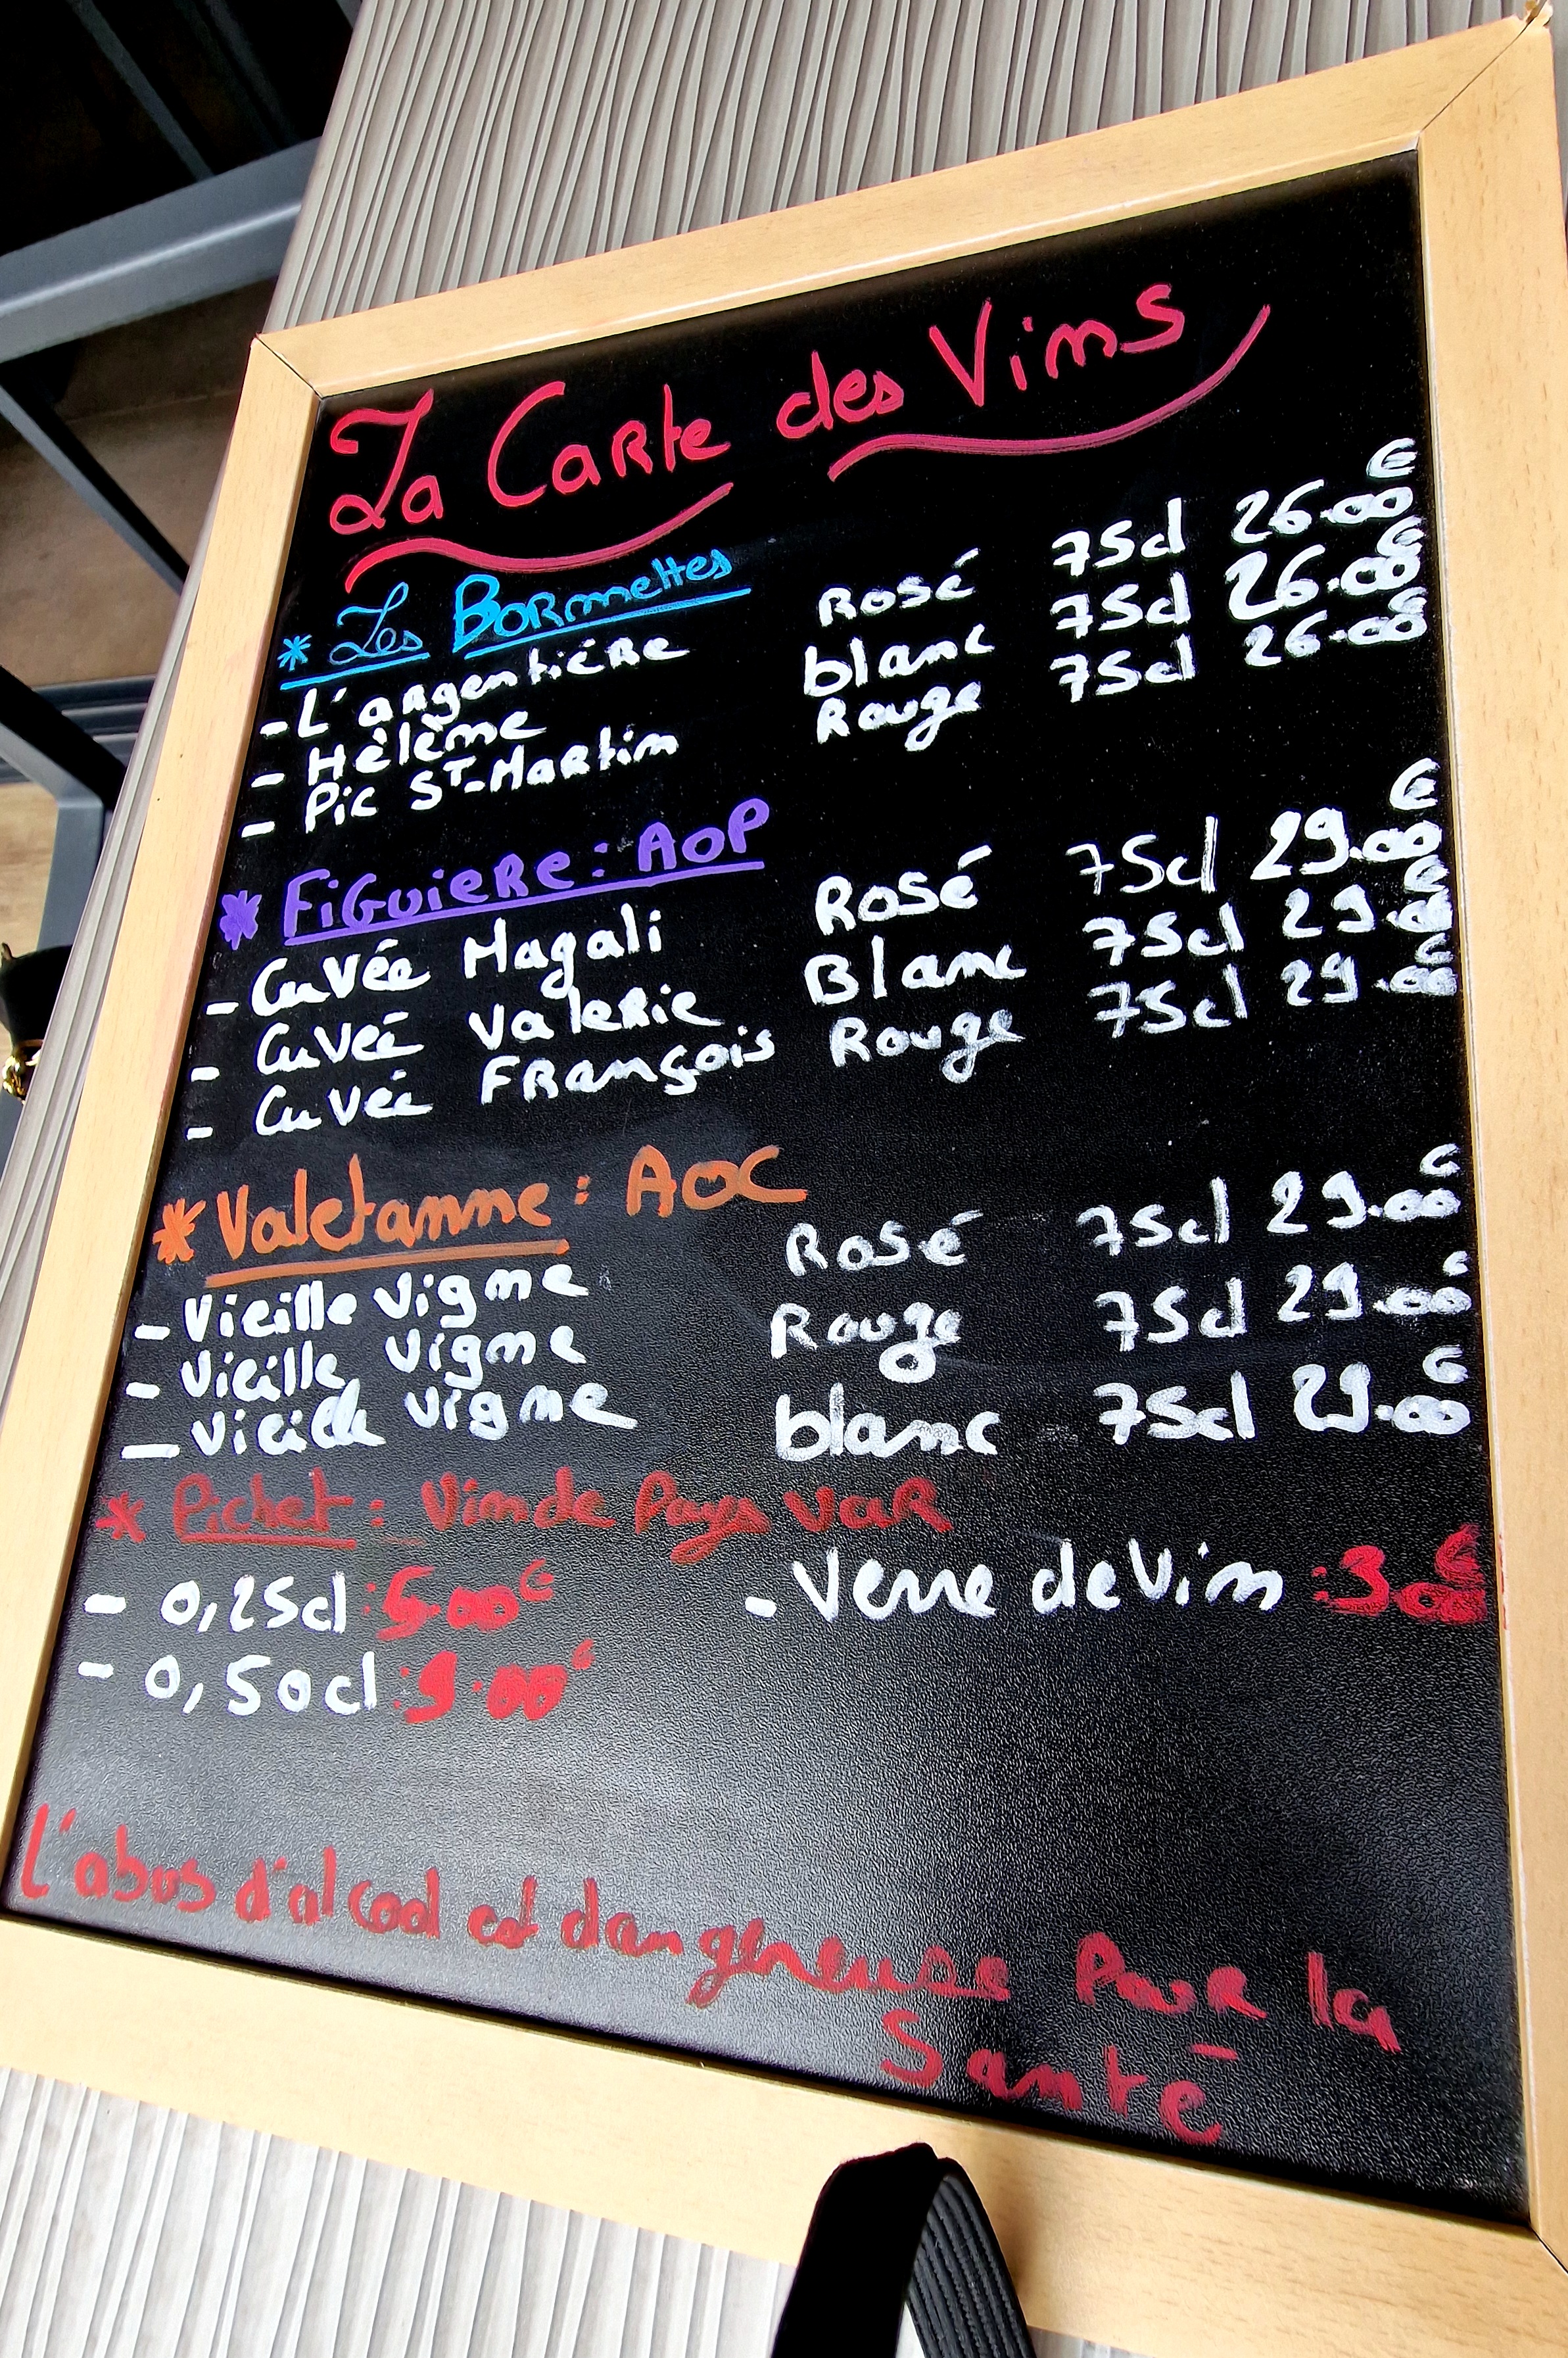 La Carte des Vins
* Les Bormettes
- L'argentiére Rosé 75cl 26.00€
- Hélème blanc 75cl 26.00€
- Pic ST-Martin Rouge 75cl 26.00€
* FiGuieRe : AOP
- Cuvée Magali Rosé 75cl 29.00€
- Cuvée Valerie Blanc 75cl 29.00€
- Cuvée François Rouge 75cl 29.00€
* Valetanne : AOC
- Vieille Vigne Rosé 75cl 29.00€
- Vieille Vigne Rouge 75cl 29.00€
- Vieille Vigne blanc 75cl 29.00€
* Pichet : Vin de Pays VaR
- 0,25cl : 5.00€ - Verre de Vin : 3.00€
- 0,50cl : 9.00€
L'abus d'alcool est dangereuse Pour la
Santé